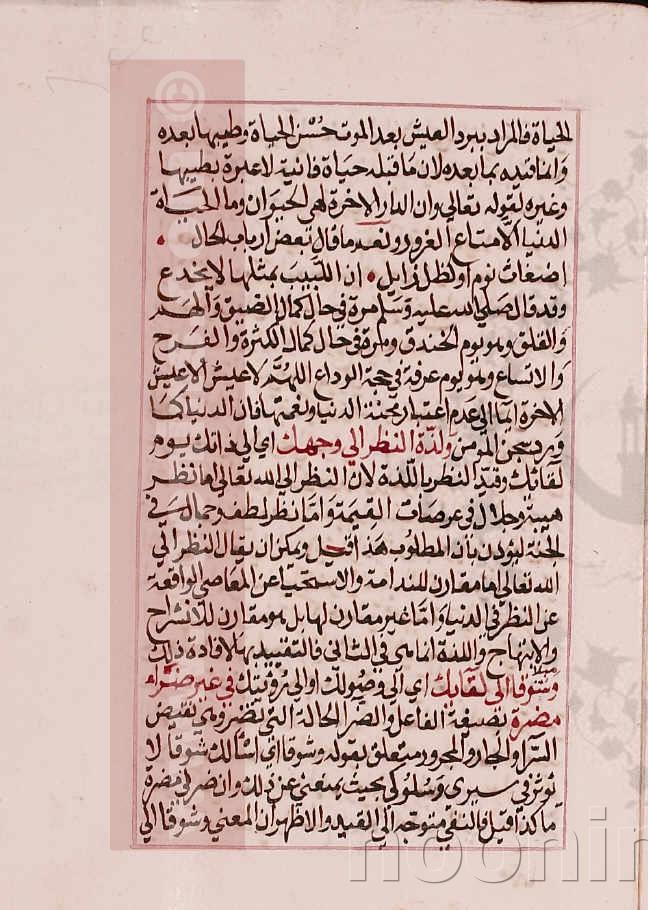 الحياة فالمراد ببرد العيش بعد الموت حُسْن الحياة وطيبها بعده
وانما قيده بما بعده لان ما قبله حياة فانية لا عبرة بطيبها
وغيره لقوله تعالى وان الدار الاخرة لهي الحيوان وما الحياة
الدنيا الا متاع الغرور ولنعم ما قال بعض ارباب الحال
اضغاث نوم او كظل زايل ان اللبيب بمثلها لا يخدع
وقد قال صلى الله عليه وسلم مرة في حال كمال الضيق والهم
والقلق وهو يوم الخندق ومرة في حال كمال الكثرة والفرح
والاتساع وهو يوم عرفة في حجة الوداع اللهم لا عيش الا عيش
الاخرة ايماالى عدم اعتبار محنة الدنيا ونعمتها فان الدنيا كما
ورد سجن المؤمن ولذة النظر الي وجهك اي الي ذاتك يوم
لقائك وقيد النظر باللذة لان النظر الي الله تعالى اما نظر
هيبة وجلال في عرصات القيمة واما نظر لطف وجمال في
الجنة ليؤذن بان المطلوب هذا قيل ويمكن ان يقال النظر الي
الله تعالى اما مقارن للندامة والاستحيا عن المعاصي الواقعة
عن النظر في الدنيا واما غير مقارن لها بل هو مقارن للانشراح
والابتهاج واللذة انما هي في الثاني فالتقييد بها لافادة ذلك
وشوقا الي لقايك اي الي وصولك او الي رؤيتك في غير ضراء
مضرة بصيغة الفاعل والضرا الحالة التي تضر وهي نقيض
السرا والجار والمجرور متعلق بقوله وشوقا اي اسالك شوقا لا
توثر في سيري وسلوكي بحيث يمنعني عن ذلك وان ضرني مضرة
ما كذا قيل فالنفي متوجه الي القيد والاظهر ان المعني وشوقا الي
noonin